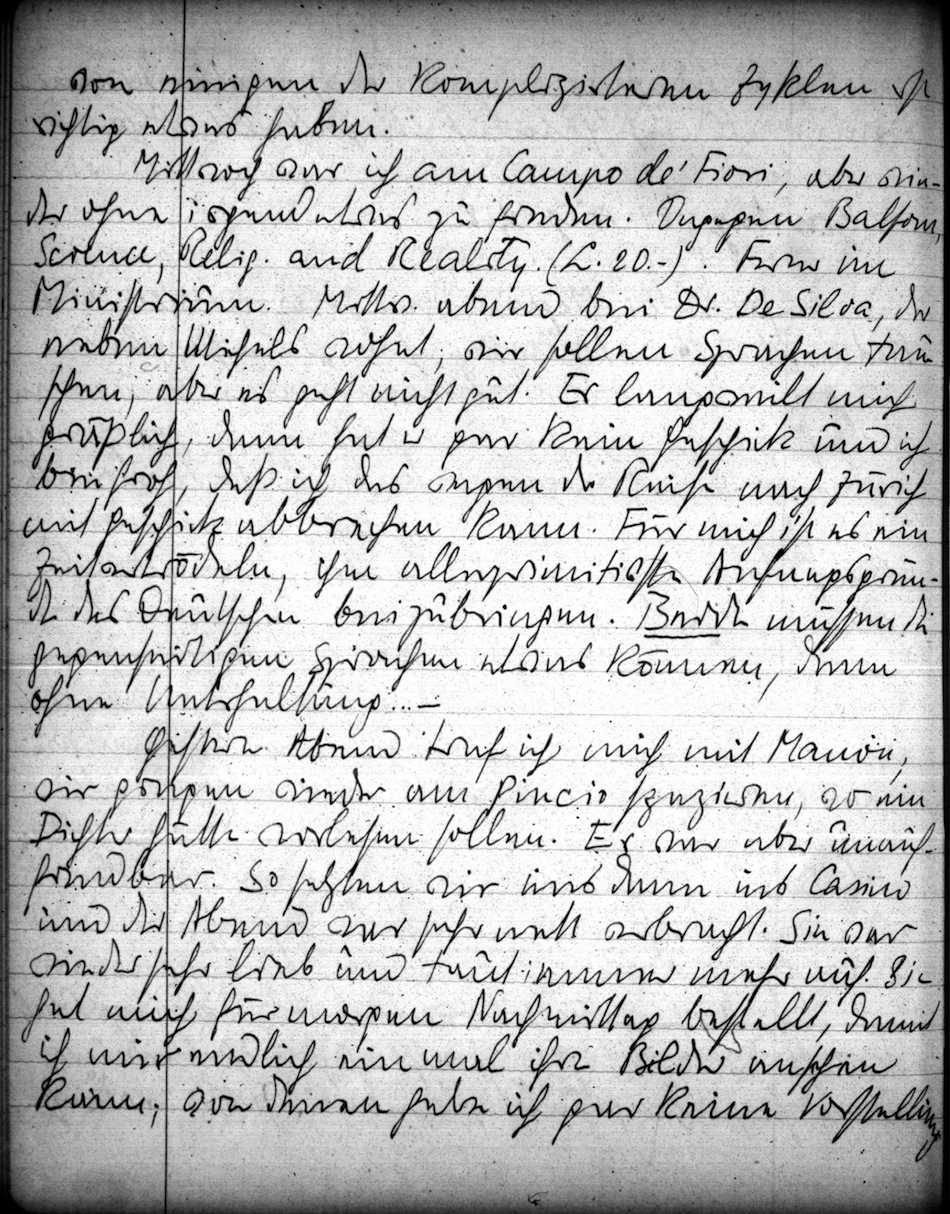 von einigen der komplizierteren Zyklen ist
richtig etwas haben.
Mittwoch war ich am Campo de' Fiori, aber wie-
der ohne irgendetwas zu finden. Dagegen Balfour,
Science, Relig. and Reality. (L. 20.-). Ferner im
Ministerium. Mittw. abend bei Dr. De Silva, der
neben Michels wohnt, wir sollen Sprachen tau-
schen, aber es geht nicht gut. Er langweilt mich
gräßlich, denn hat er gar kein Geschick und ich
bin froh, daß ich das wegen der Reise nach Zürich
mit Geschick abbrechen kann. Für mich ist es ein
Zeitvertrödeln, ihm allerprimitivste Anfangsgrün-
de des Deutschen beizubringen. Beide müssen die
gegenseitigen Sprachen etwas können, denn
ohne Unterhaltung...—
Gestern Abend traf ich mich mit Manon,
wir gingen wieder am Pincio spazieren, wo ein
Dichter hätte vorlesen sollen. Er war aber unauf-
findbar. So setzten wir uns dann ins Casino
und der Abend war sehr nett verbracht. Sie war
wieder sehr lieb und taut immer mehr auf. Sie
hat mich für morgen Nachmittag bestellt, damit
ich mir endlich einmal ihre Bilder ansehen
kann; von denen habe ich gar keine Vorstellung